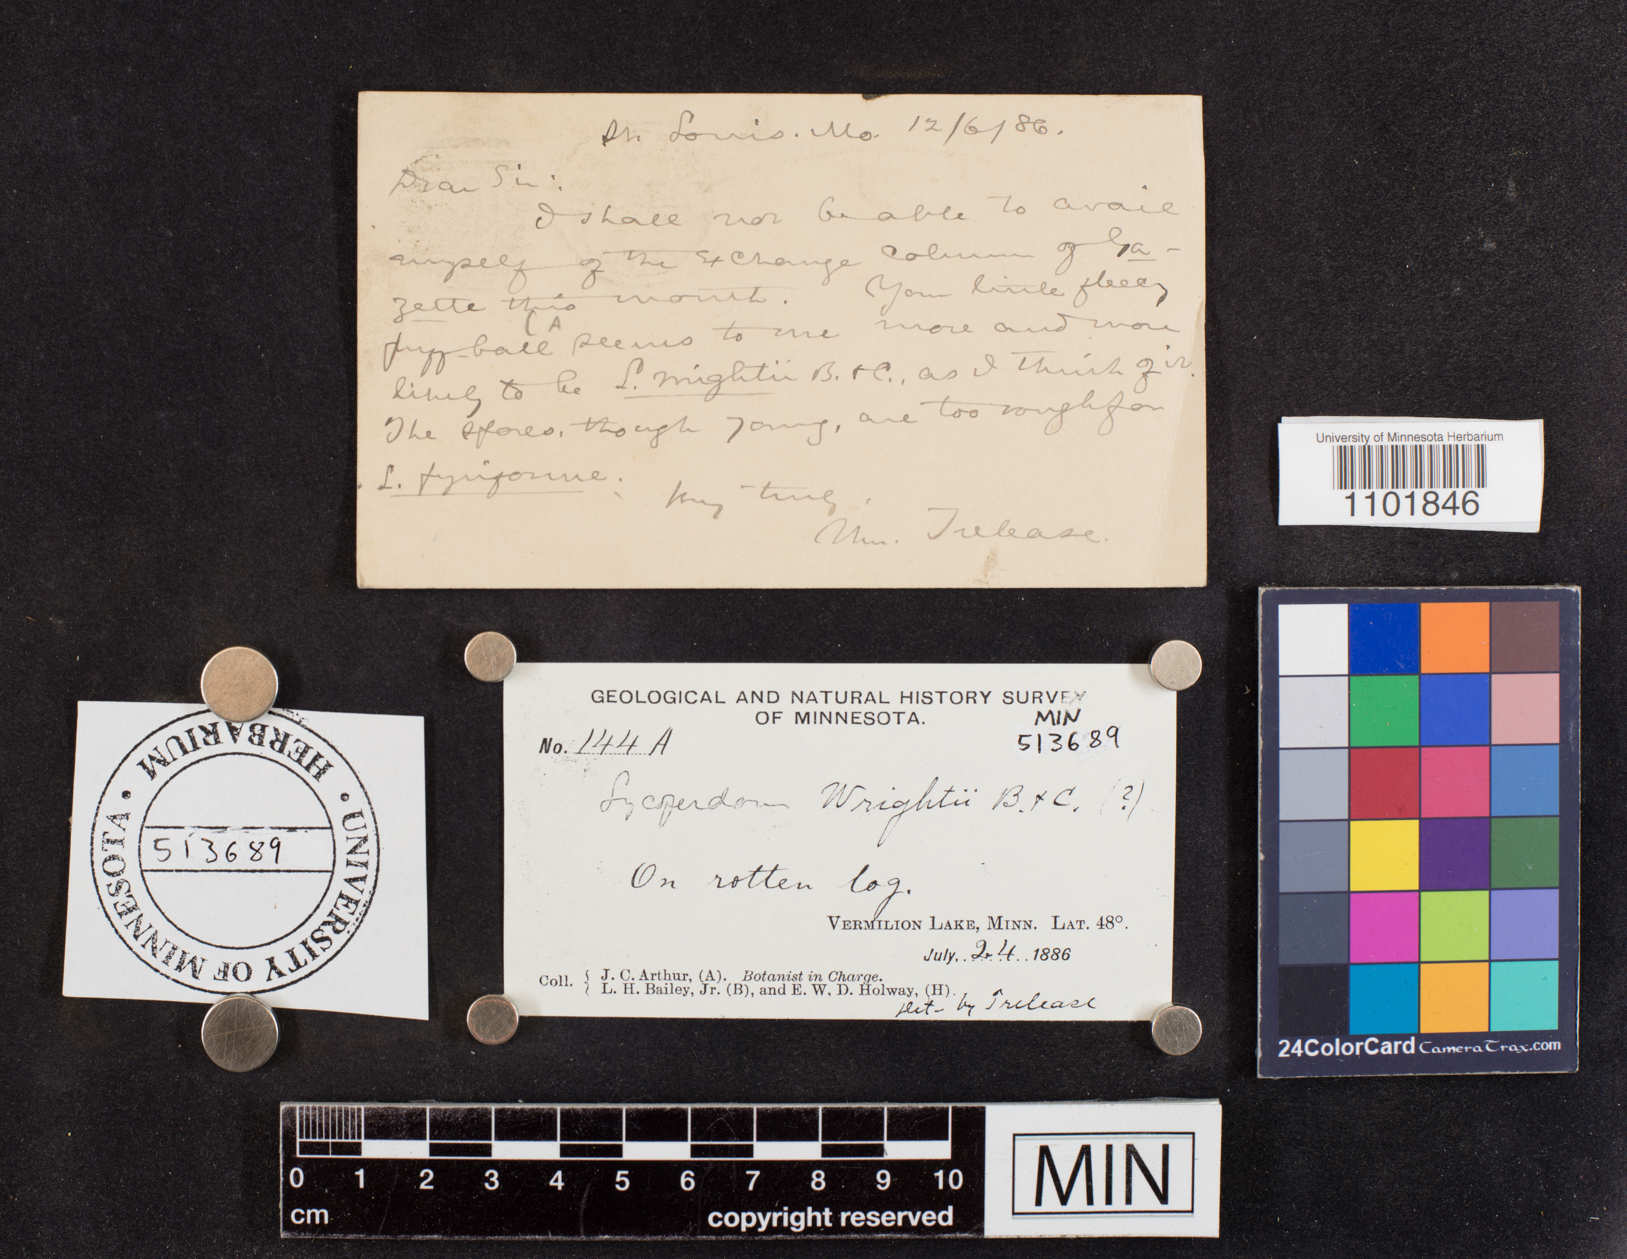 St. Louis. Mo. 12/6/86.
Dear Sir:
I shall not be able to avail
myself of the exchange column of Ga-
zette this month. Your little fleecy
(A
puff-ball seems to me more and more
likely to be L. Wrightii B. & C., as I think of it.
The spores, though young, are too rough for
L. pyriforme.
Very truly,
Wm. Trelease.
University of Minnesota Herbarium
1101846
GEOLOGICAL AND NATURAL HISTORY SURVEY
OF MINNESOTA.
MIN
No. 144 A
513689
Lycoperdon Wrightii B. & C. (?)
On rotten log.
VERMILION LAKE, MINN. LAT. 48°.
July 24 1886
Coll. { J. C. Arthur, (A). Botanist in Charge.
L. H. Bailey, Jr. (B), and E. W. D. Holway, (H).
det. by Trelease
UNIVERSITY OF MINNESOTA • HERBARIUM •
513689
24ColorCard CameraTrax.com
0 1 2 3 4 5 6 7 8 9 10
cm
copyright reserved
MIN